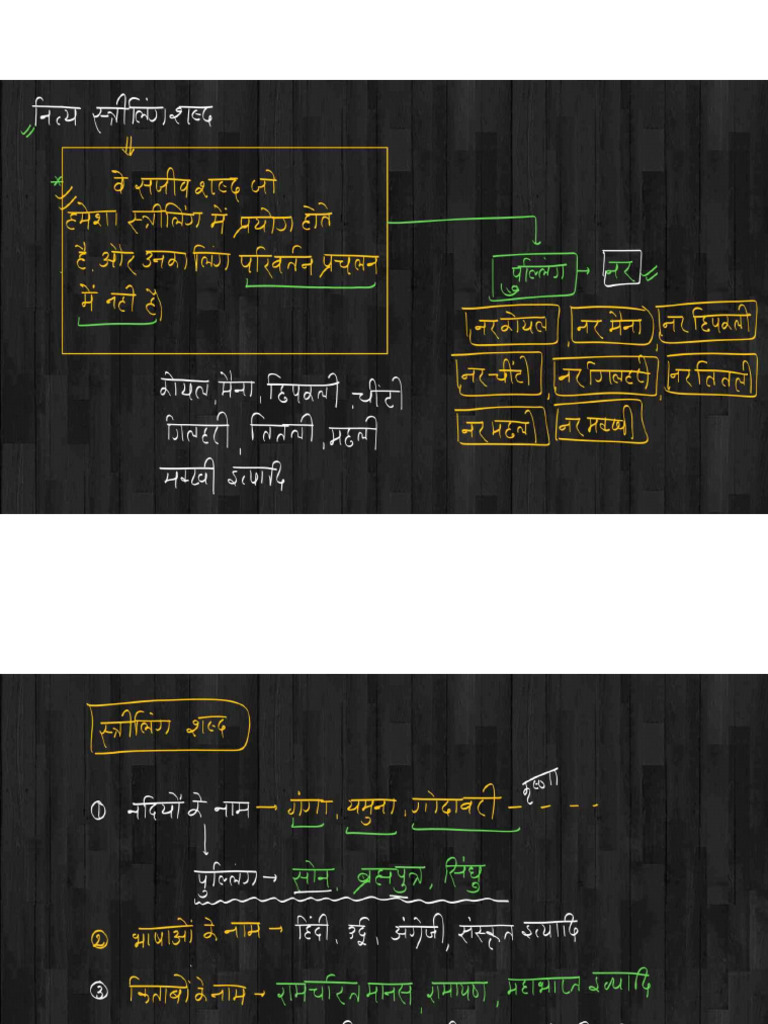 नित्य स्त्रीलिंग शब्द
वे सजीव शब्द जो
हमेशा स्त्रीलिंग में प्रयोग होते
है, और उनका लिंग परिवर्तन प्रचलन
में नही है)
पुल्लिंग → नर
नर कोयल, नर मैना, नर छिपकली
नर चींटी, नर गिलहरी, नर तितली
नर मछली, नर मक्खी
कोयल, मैना, छिपकली, चींटी
गिलहरी, तितली, मछली
मक्खी इत्यादि
स्त्रीलिंग शब्द
① नदियों के नाम → गंगा, यमुना, गोदावरी - - - -
कृष्णा
पुल्लिंग → सोन, ब्रह्मपुत्र, सिंधु
② भाषाओं के नाम → हिंदी, उर्दू, अंग्रेजी, संस्कृत इत्यादि
③ किताबों के नाम → रामचरित मानस, रामायण, महाभारत इत्यादि